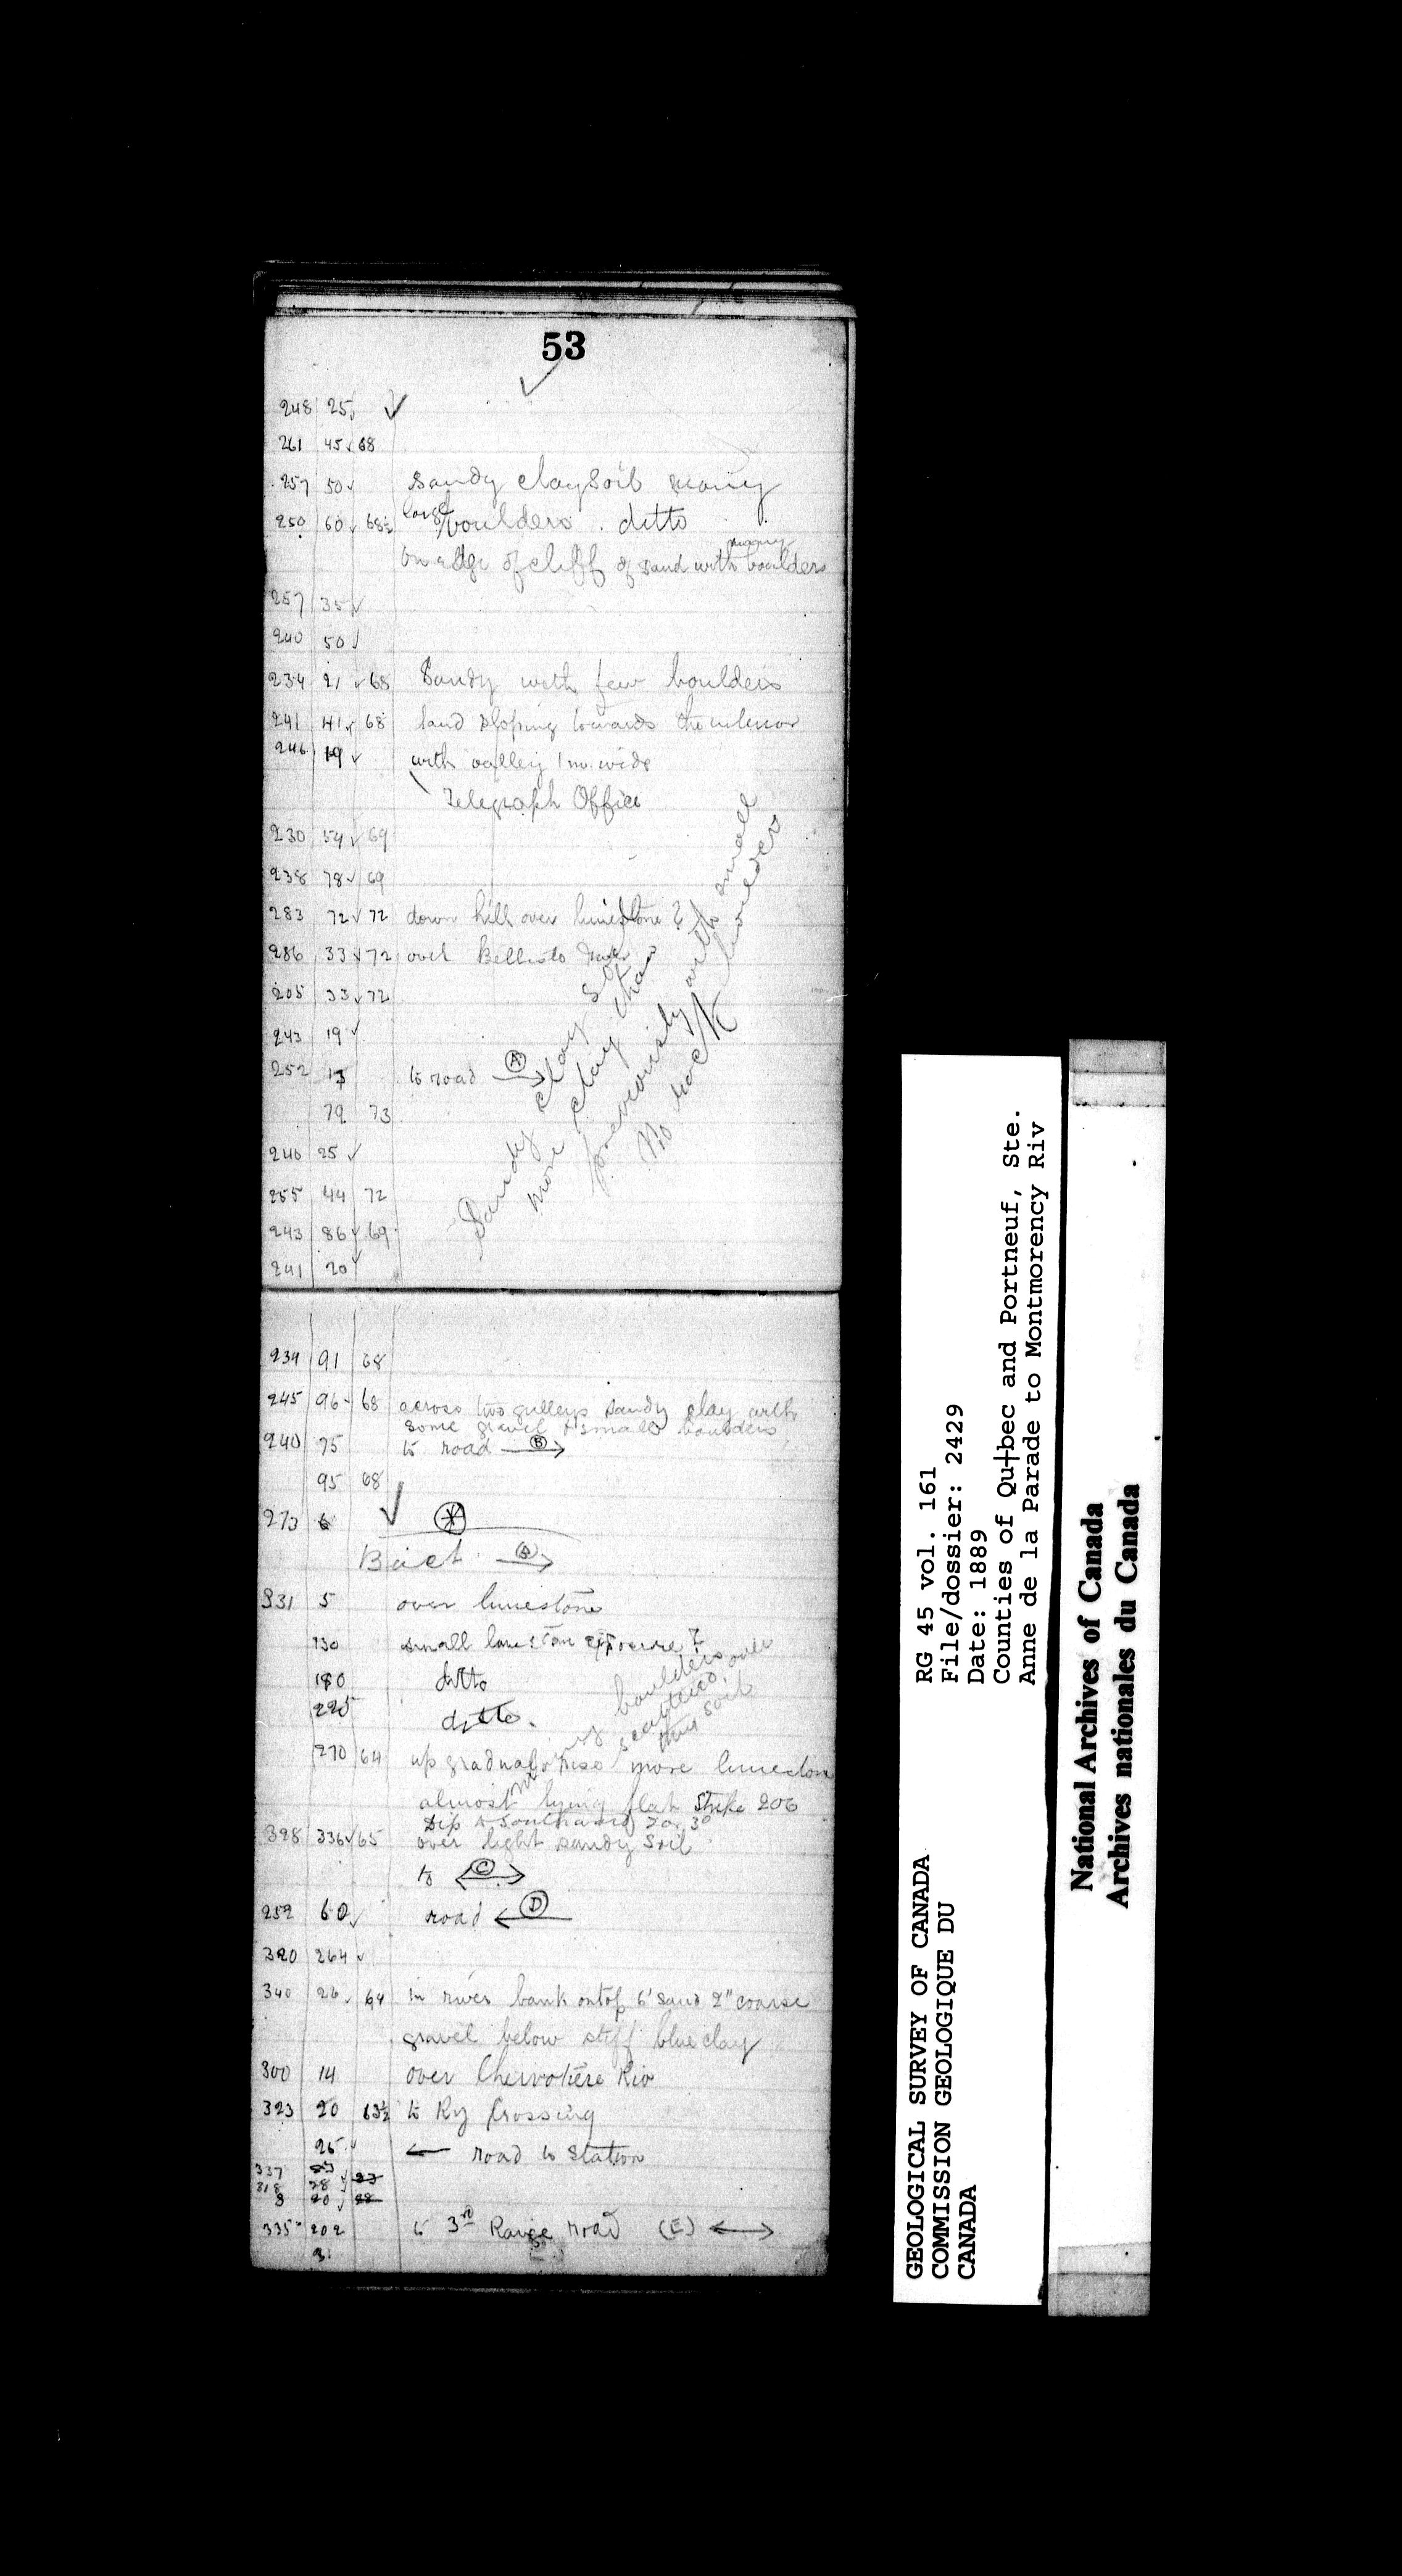 53
248 25
261 45 68
257 50 Sandy clay soil many
250 60 68½ large boulders . ditto
many
on edge of cliff of sand with boulders
257 35
240 50
234 21 68 Sandy with few boulders
241 41 68 land sloping towards the interior
246 19 with valley 1 m. wide
Telegraph Office
230 54 69
238 78 69
283 72 72 down hill over limestone
286 33 72 over River
205 33 72
243 19
252 13 to road A
79 73
246 25
255 44 72
243 86 69
241 20
Sandy clay soil
more clay than
previously with small
No rock boulders
234 91 68
245 96 68 across two gulleys sandy clay with
some gravel & small boulders
240 75 to road B
95 68
273 6
Back A
331 5 over limestone
130 small exposure
180 ditto
225 ditto
270 64 up gradual rise more limestone
almost lying flat Strike 206
Dip to Southward 20.30
many boulders
scattered over
this soil
328 336 65 over light sandy soil
to C
252 60 road D
320 264
340 26 64 in river bank on top 6' sand 2" coarse
gravel below stiff blue clay
300 14 over Chevrotiere Riv
323 20 63½ to Ry Crossing
25 road to Station
337
318 28
20
335 202 to 3rd Range road (E)
31
RG 45 vol. 161
File/dossier: 2429
Date: 1889
Counties of Qu†bec and Portneuf, Ste.
Anne de la Parade to Montmorency Riv
GEOLOGICAL SURVEY OF CANADA
COMMISSION GEOLOGIQUE DU
CANADA
National Archives of Canada
Archives nationales du Canada